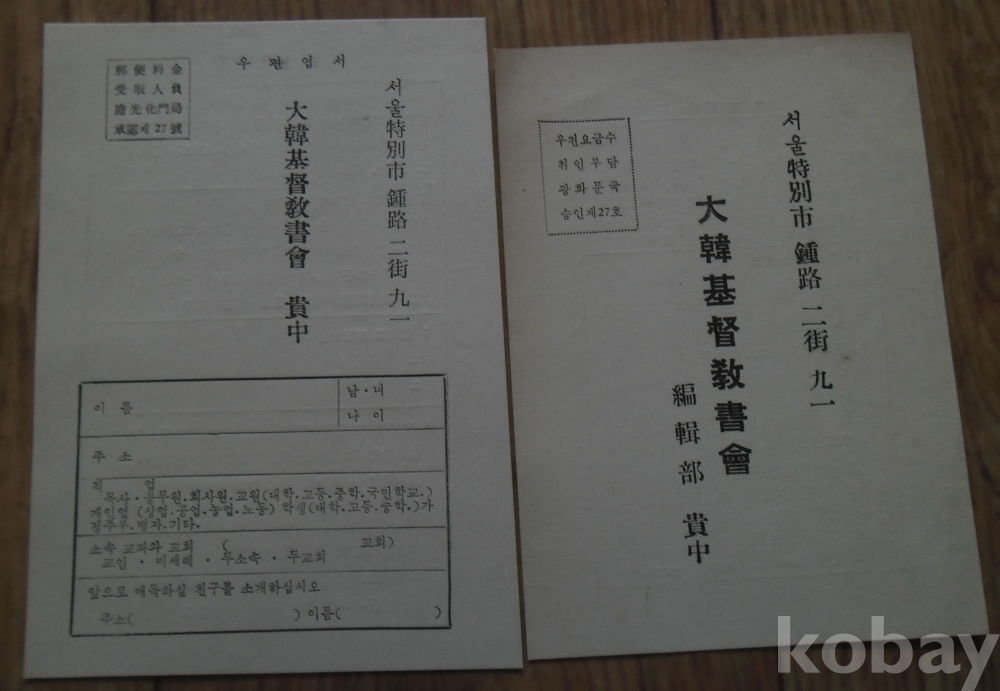 우편엽서
郵便料金
受取人負
擔光化門局
承認제27號
서울特別市 鍾路 二街 九一
大韓基督敎書會 貴中
이름
남·녀
나이
주소
직 업
목사·공무원·회사원·교원(대학·고등·중학·국민학교·)
개인업 (상업·공업·농업·노동) 학생(대학·고등·중학·)가
정주부·병자·기타·
소속 교파와 교회 ( 교회)
교인 · 미세례 · 무소속 · 무교회
앞으로 애독하실 친구를 소개하십시오
주소( ) 이름( )
우편요금수
취인부담
광화문국
승인제27호
서울特別市 鍾路 二街 九一
大韓基督敎書會
編輯部 貴中
kobay